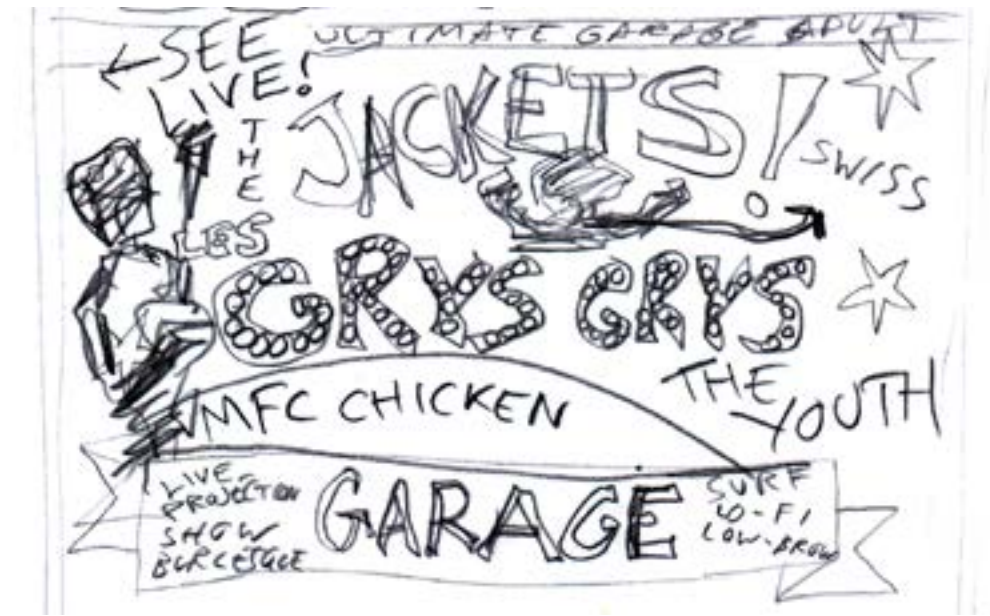 ULTIMATE GARAGE ADULT
SEE
LIVE!
THE
JACKETS!
SWISS
LES
GRYS GRYS
THE
YOUTH
MFC CHICKEN
LIVE
PROJECTION
SHOW
BURLESQUE
GARAGE
SURF
LO-FI
LOW-BROW